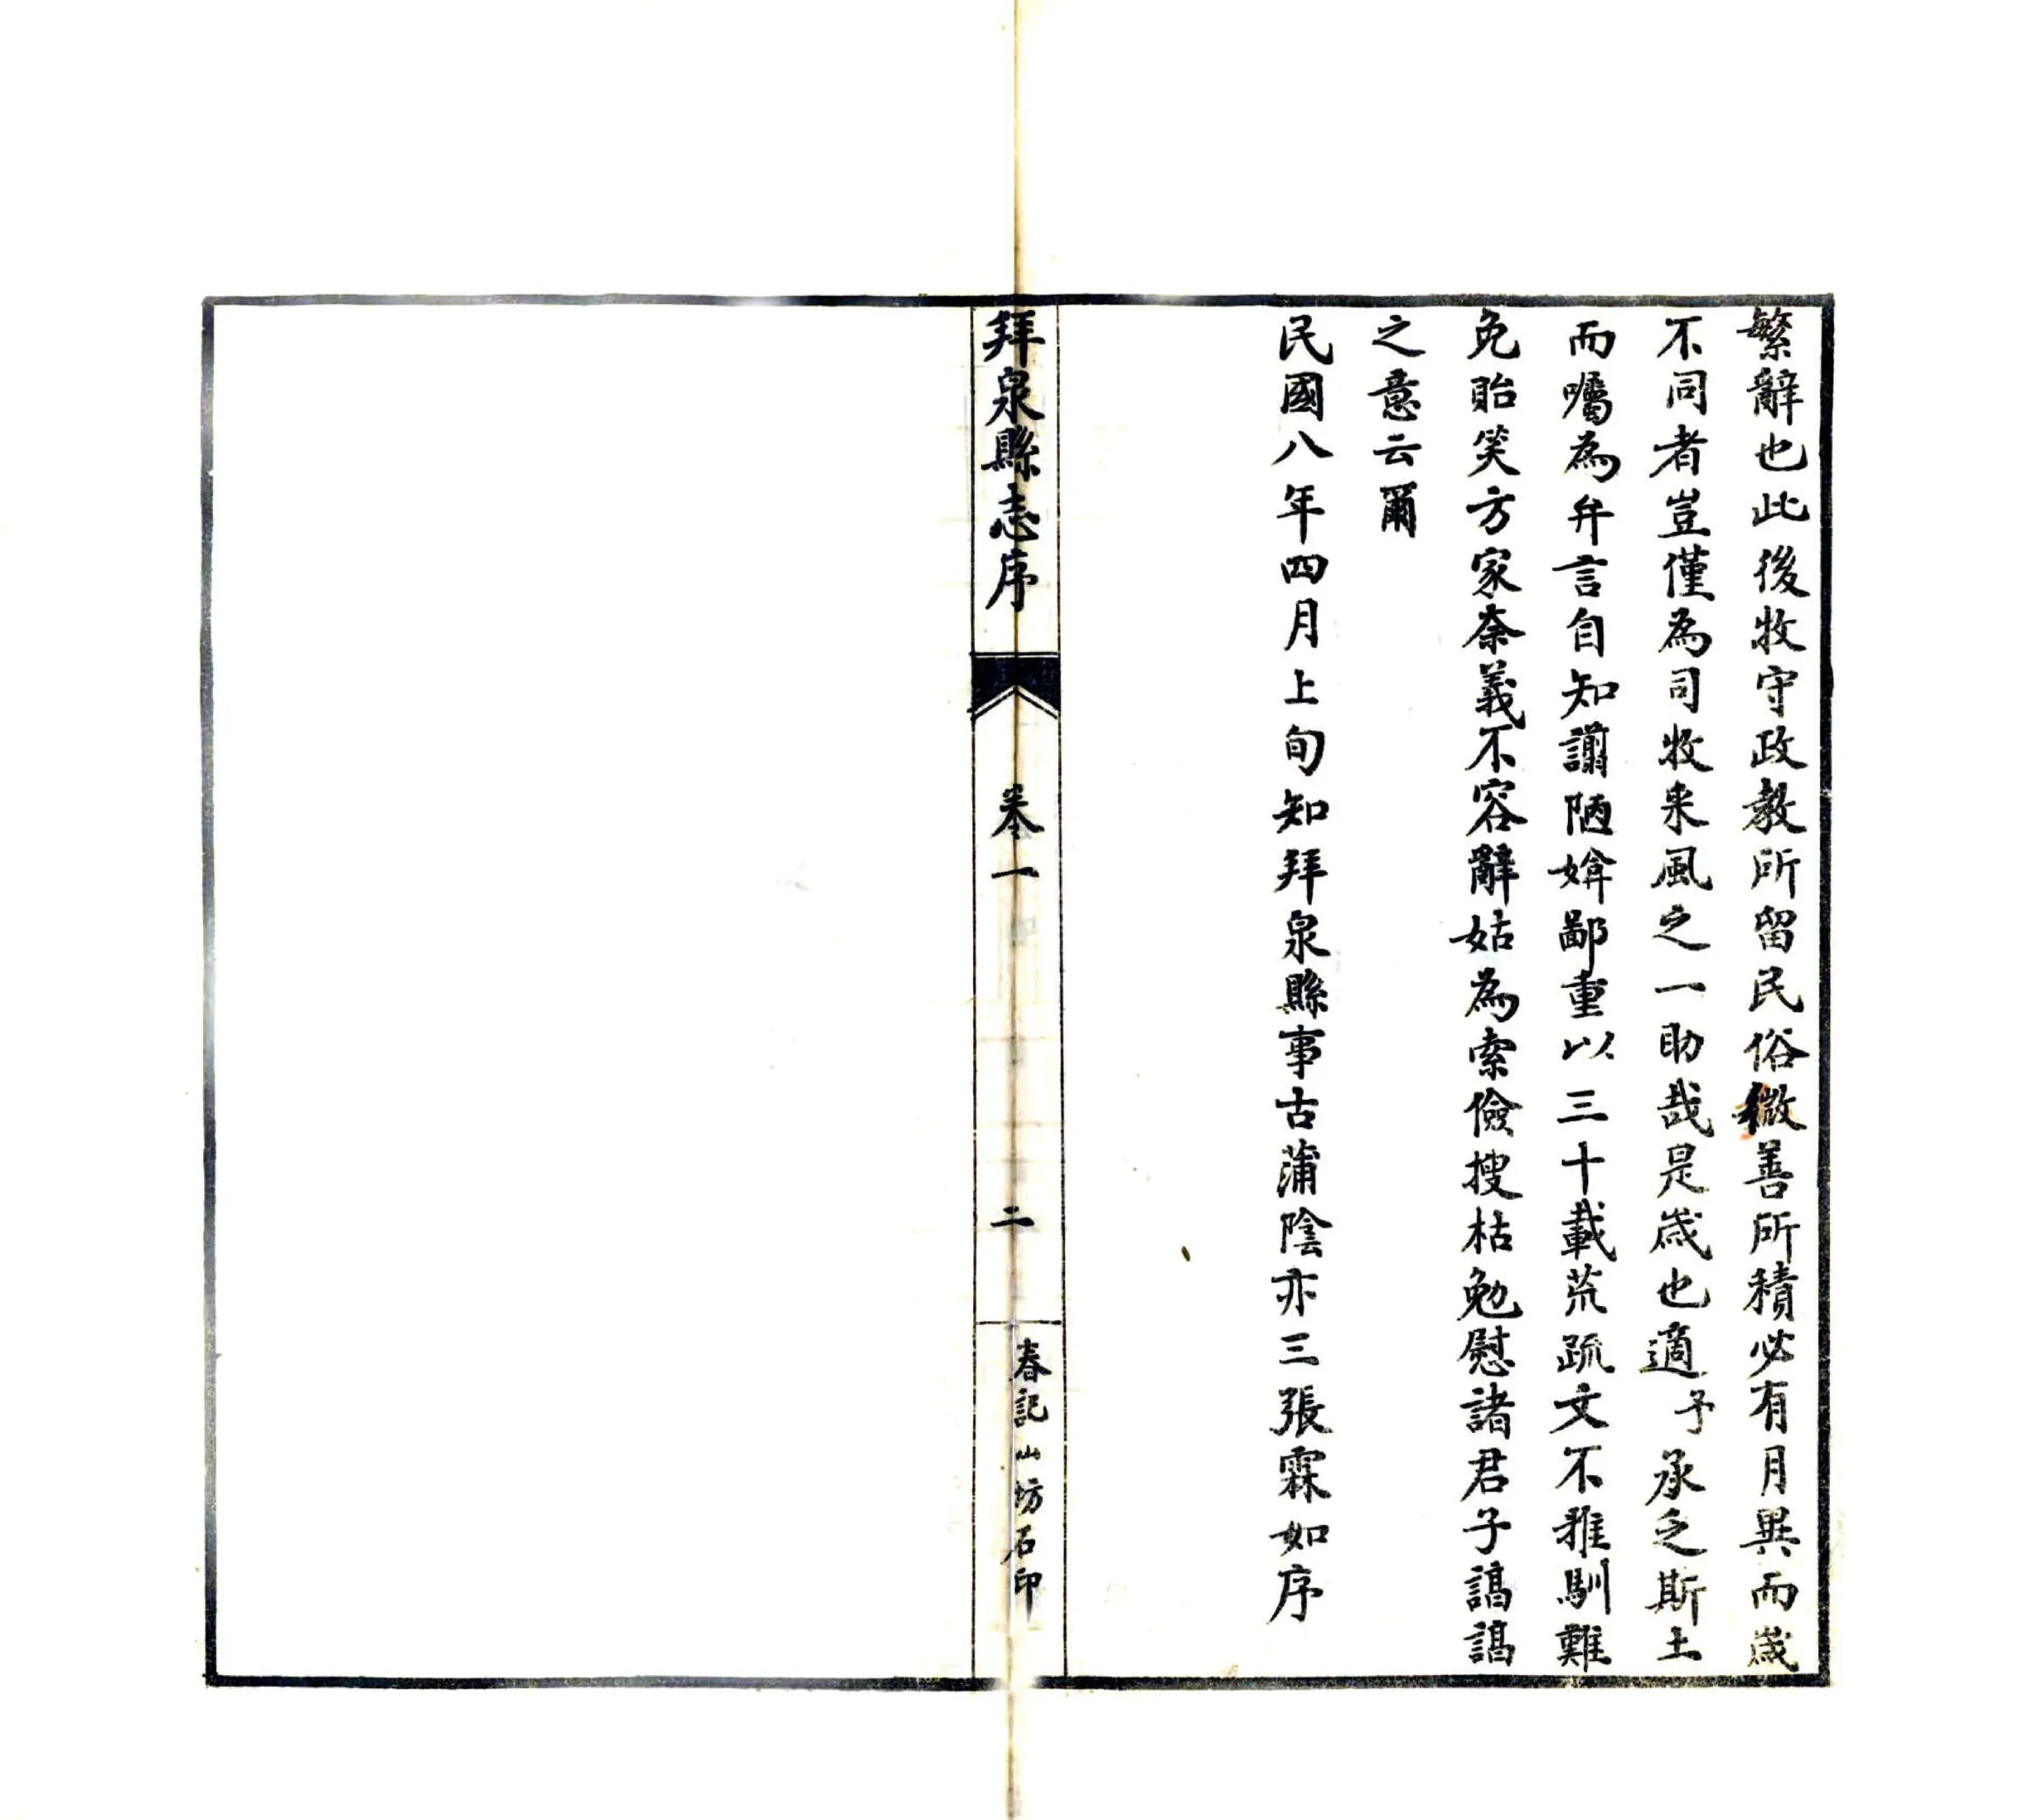 繁辭也此後牧守政教所留民俗微善所積必有月異而歲
不同者豈僅為司牧来風之一助哉是歲也適予承乏斯土
而囑為弁言自知譾陋媕鄙重以三十載荒疏文不雅馴難
免貽笑方家奈義不容辭姑為索儉搜枯勉慰諸君子譪譪
之意云爾
民國八年四月上旬知拜泉縣事古蒲陰亦三張霖如序
拜泉縣志序
卷一
二
春記山坊石印